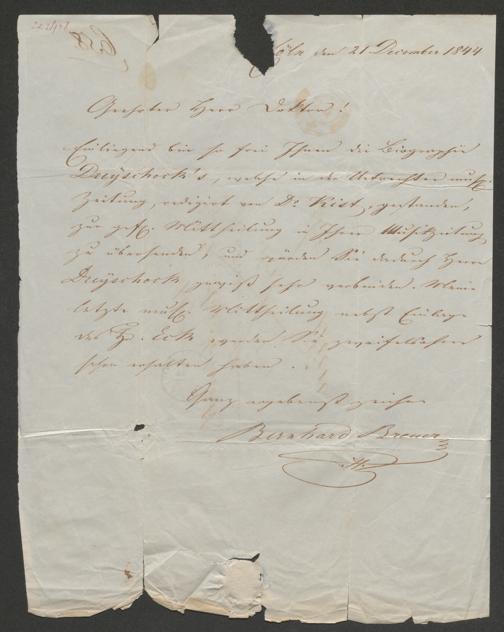 Cöln den 21 December 1844
Geehrter Herr Doktor!
Einliegend bin so frei Ihnen die Biographie
Dreyschock's, welche in der Utrechter musik.
Zeitung, redigirt von Dr Kist, gestanden,
zur gefl. Mittheilung in Ihrer Musikzeitung
zu übersenden, und würden Sie dadurch Herrn
Dreyschock gewiß sehr verbinden. Meine
letzte musik. Mittheilung nebst Einlage
des H. Eck werden Sie zweifelsohne
schon erhalten haben.
Ganz ergebenst zeichnet
Bernhard Breuer